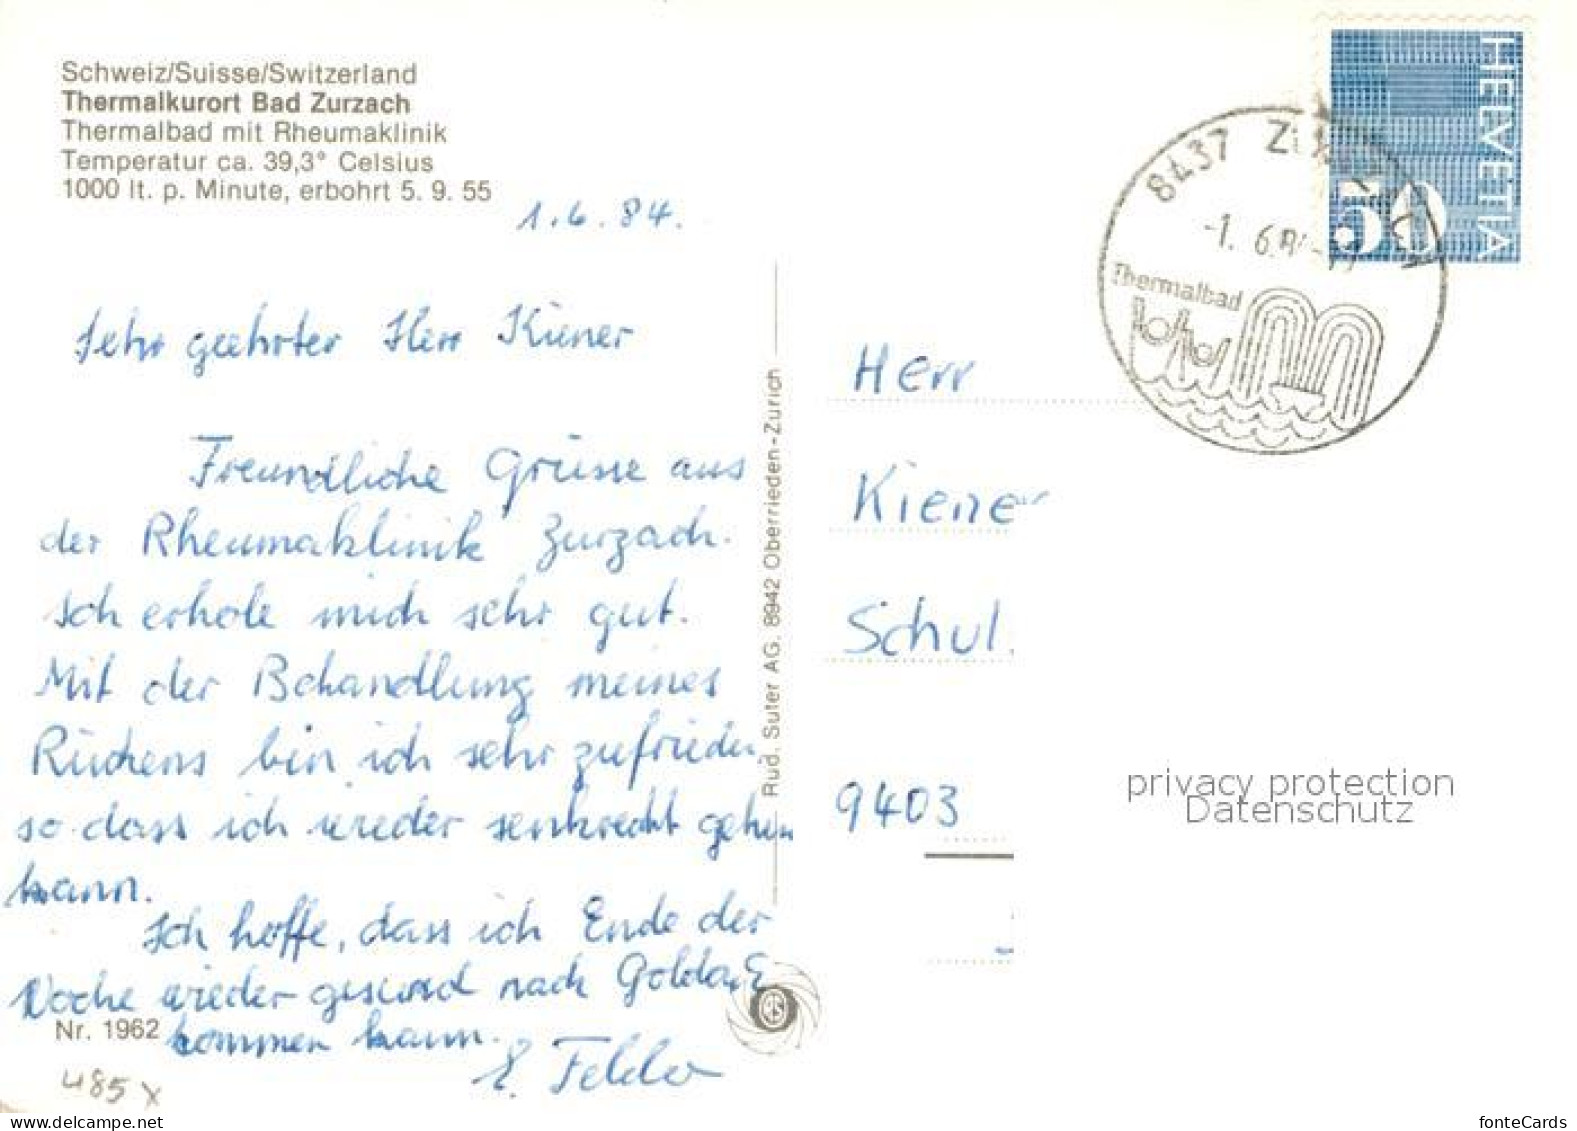 Schweiz/Suisse/Switzerland
Thermalkurort Bad Zurzach
Thermalbad mit Rheumaklinik
Temperatur ca. 39,3° Celsius
1000 lt. p. Minute, erbohrt 5. 9. 55
1.6.84.
Sehr geehrter Herr Kiener
Freundliche Grüsse aus
der Rheumaklinik Zurzach.
Ich erhole mich sehr gut.
Mit der Behandlung meines
Rückens bin ich sehr zufrieden,
so dass ich wieder senkrecht gehen
kann.
Ich hoffe, dass ich Ende der
Woche wieder gesund nach Goldach
kommen kann.
E. Felder
Nr. 1962
485 x
Rud. Suter AG. 8942 Oberrieden-Zürich
HELVETIA
50
8437 ZURZACH
-1. 6.84
Thermalbad
Herr
Kiener
Schul
9403
privacy protection
Datenschutz
www.delcampe.net
fonteCards